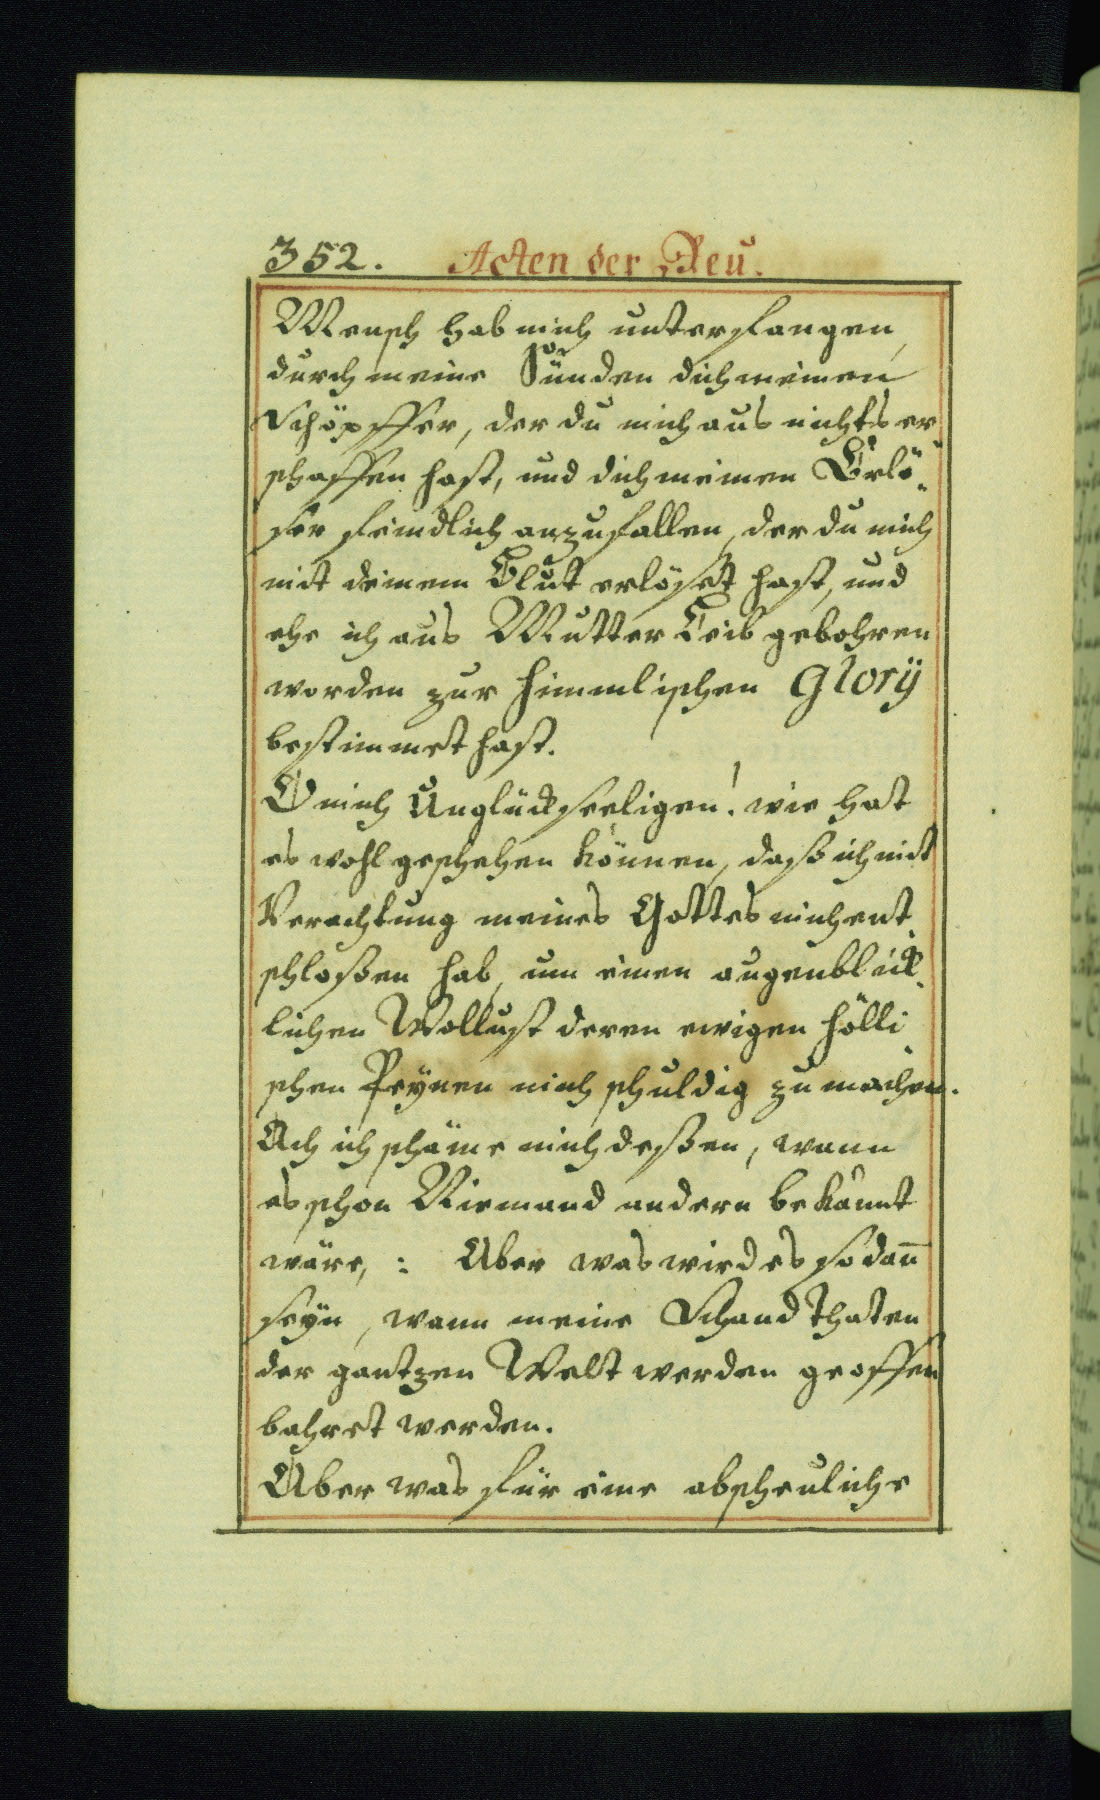 352. Acten der Reu.
Mensch hab mich unterfangen,
durch meine Sünden dich meinen
Schöpffer, der du mich aus nichts er„
schaffen hast, und dich meinen Erlö„
ser feindlich anzufallen, der du mich
mit deinem Blut erlöset hast, und
ehe ich aus Mutter Leib gebohren
worden zur himmlischen Glorÿ
bestimmet hast.
O mich Unglückseeligen! wie hat
es wohl geschehen können, daß ich mit
Verachtung meines Gottes mich ent„
schloßen hab, um einen augenblick„
lichen Wollust deren ewigen hölli„
schen Peÿnen mich schuldig zu machen.
Ach ich schäme mich deßen, wann
es schon Niemand andern bekannt
wäre,: Aber was wird es sodañ
seÿn, wann meine Schand thaten
der gantzen Welt werden geoffen
bahret werden.
Aber was für eine abscheuliche